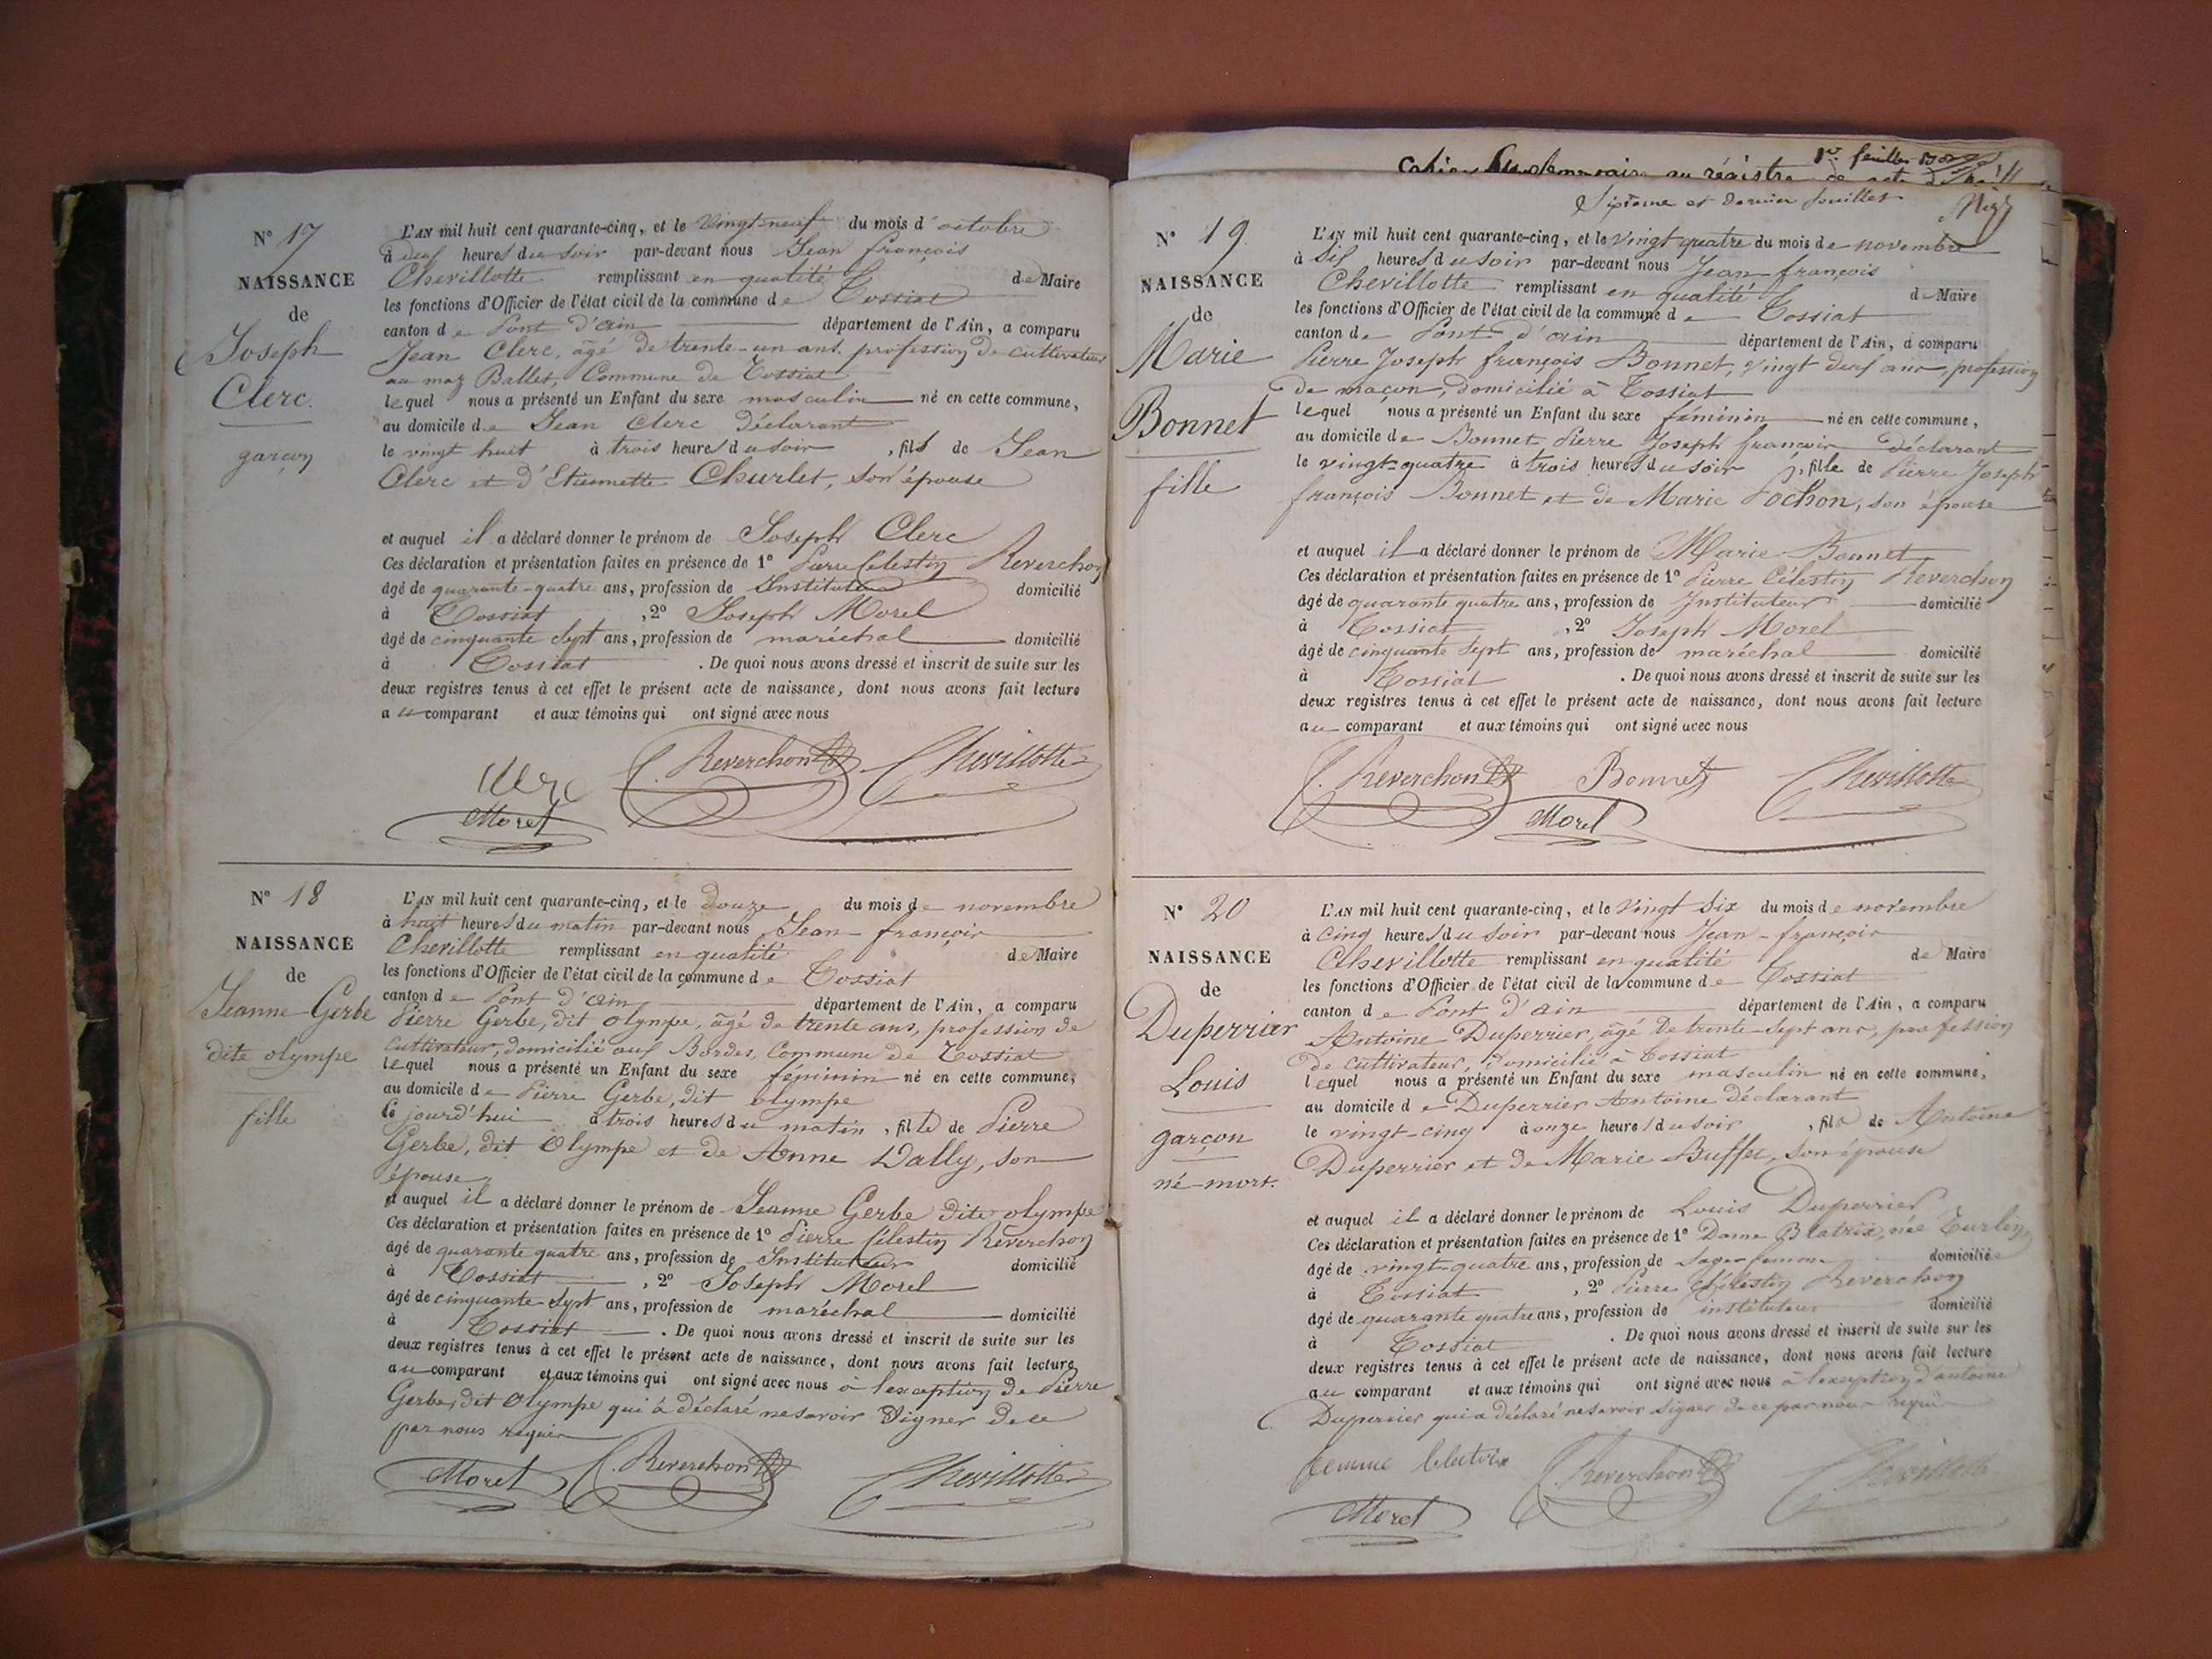 N° 17
NAISSANCE
de
Joseph
Clerc.
garçon
L'AN mil huit cent quarante-cinq, et le Vingt-neuf du mois d'octobre
à deux heures du soir par-devant nous Jean françois
Chevillotte remplissant en qualité de Maire
les fonctions d'Officier de l'état civil de la commune de Tossiat
canton de Pont d'ain département de l'Ain, a comparu
Jean Clerc, âgé de trente-un ans, profession de cultivateur
au maz Ballet, Commune de Tossiat
lequel nous a présenté un Enfant du sexe masculin né en cette commune,
au domicile de Jean Clerc déclarant
le vingt huit à trois heures du soir, fils de Jean
Clerc et d'Etiennette Churlet, son épouse
et auquel il a déclaré donner le prénom de Joseph Clerc
Ces déclaration et présentation faites en présence de 1° Pierre Célestin Reverchon
âgé de quarante-quatre ans, profession de Instituteur domicilié
à Tossiat, 2° Joseph Morel
âgé de cinquante sept ans, profession de maréchal domicilié
à Tossiat. De quoi nous avons dressé et inscrit de suite sur les
deux registres tenus à cet effet le présent acte de naissance, dont nous avons fait lecture
au comparant et aux témoins qui ont signé avec nous
Clerc Reverchon Chevillotte
Morel
N° 18
NAISSANCE
de
Jeanne Gerbe
dite olympe
fille
L'AN mil huit cent quarante-cinq, et le douze du mois de novembre
à huit heures du matin par-devant nous Jean-françois
Chevillotte remplissant en qualité de Maire
les fonctions d'Officier de l'état civil de la commune de Tossiat
canton de Pont d'ain département de l'Ain, a comparu
Pierre Gerbe, dit olympe, âgé de trente ans, profession de
cultivateur, domicilié aux Bordes, Commune de Tossiat
lequel nous a présenté un Enfant du sexe féminin né en cette commune,
au domicile de Pierre Gerbe, dit olympe
Ce jourd'hui à trois heures du matin, fille de Pierre
Gerbe, dit Olympe et de Anne Dally, son
épouse
et auquel il a déclaré donner le prénom de Jeanne Gerbe dite olympe
Ces déclaration et présentation faites en présence de 1° Pierre Célestin Reverchon
âgé de quarante quatre ans, profession de Instituteur domicilié
à Tossiat, 2° Joseph Morel
âgé de cinquante-sept ans, profession de maréchal domicilié
à Tossiat. De quoi nous avons dressé et inscrit de suite sur les
deux registres tenus à cet effet le présent acte de naissance, dont nous avons fait lecture
au comparant et aux témoins qui ont signé avec nous à l'exception de Pierre
Gerbe, dit Olympe qui à déclaré ne savoir signer de ce
par nous requis
Morel Reverchon Chevillotte
1er feuillet
Cahier Supplémentaire au régistre de acte de
Sixième et dernier feuillet
N° 19
NAISSANCE
de
Marie
Bonnet
fille
L'AN mil huit cent quarante-cinq, et le Vingt quatre du mois de novembre
à six heures du soir par-devant nous Jean-françois
Chevillotte remplissant en qualité de Maire
les fonctions d'Officier de l'état civil de la commune de Tossiat
canton de Pont d'ain département de l'Ain, a comparu
Pierre Joseph françois Bonnet, vingt deux ans, profession
de maçon, domicilié à Tossiat
lequel nous a présenté un Enfant du sexe féminin né en cette commune,
au domicile de Bonnet Pierre Joseph françois déclarant
le vingt-quatre à trois heures du soir, fille de Pierre Joseph
françois Bonnet et de Marie Pochon, son épouse
et auquel il a déclaré donner le prénom de Marie Bonnet
Ces déclaration et présentation faites en présence de 1° Pierre Célestin Reverchon
âgé de quarante quatre ans, profession de Instituteur domicilié
à Tossiat, 2° Joseph Morel
âgé de cinquante sept ans, profession de maréchal domicilié
à Tossiat. De quoi nous avons dressé et inscrit de suite sur les
deux registres tenus à cet effet le présent acte de naissance, dont nous avons fait lecture
au comparant et aux témoins qui ont signé avec nous
Reverchon Bonnet Chevillotte
Morel
N° 20
NAISSANCE
de
Duperrier
Louis
garçon
né-mort.
L'AN mil huit cent quarante-cinq, et le Vingt six du mois de novembre
à cinq heures du soir par-devant nous Jean-françois
Chevillotte remplissant en qualité de Maire
les fonctions d'Officier de l'état civil de la commune de Tossiat
canton de Pont d'ain département de l'Ain, a comparu
Antoine Duperrier, âgé de trente-sept ans, profession
de cultivateur, domicilié à Tossiat
lequel nous a présenté un Enfant du sexe masculin né en cette commune,
au domicile de Duperrier Antoine déclarant
le vingt-cinq à onze heures du soir, fils de Antoine
Duperrier et de Marie Buffet, son épouse
et auquel il a déclaré donner le prénom de Louis Duperrier
Ces déclaration et présentation faites en présence de 1° Dame Blatrix, née Turlin
âgé de vingt-quatre ans, profession de sage-femme domiciliée
à Tossiat, 2° Pierre Célestin Reverchon
âgé de quarante quatre ans, profession de instituteur domicilié
à Tossiat. De quoi nous avons dressé et inscrit de suite sur les
deux registres tenus à cet effet le présent acte de naissance, dont nous avons fait lecture
au comparant et aux témoins qui ont signé avec nous à l'exception d'antoine
Duperrier qui a déclaré ne savoir signer de ce par nous requis
femme Blatrix Reverchon Chevillotte
Morel